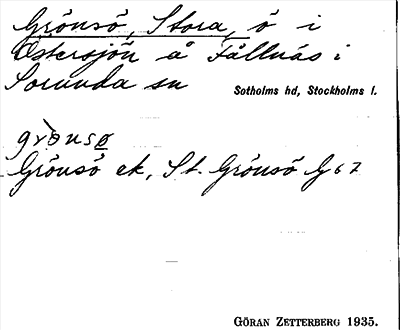 Grönsö, Stora, ö i
Östersjön å Fållnäs i
Sorunda sn
Sotholms hd, Stockholms l.
grònsø
Grönsö ek, St. Grönsö G 67
GÖRAN ZETTERBERG 1935.